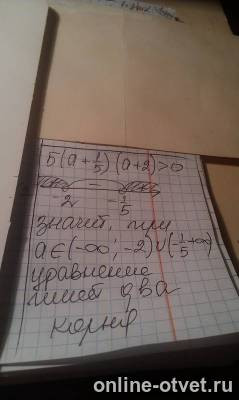 5(a+1/5)(a+2)>0
− 
-2 -1/5
значит, при
a∈(-∞; -2)∪(-1/5 +∞)
уравнение
имеет два
корня
online-otvet.ru